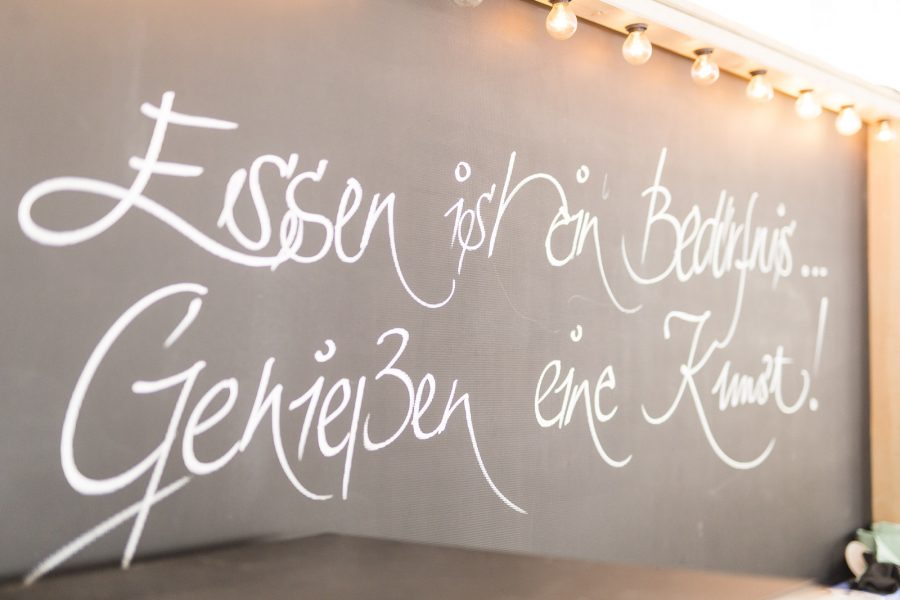 Essen ist ein Bedürfnis...
Genießen eine Kunst!